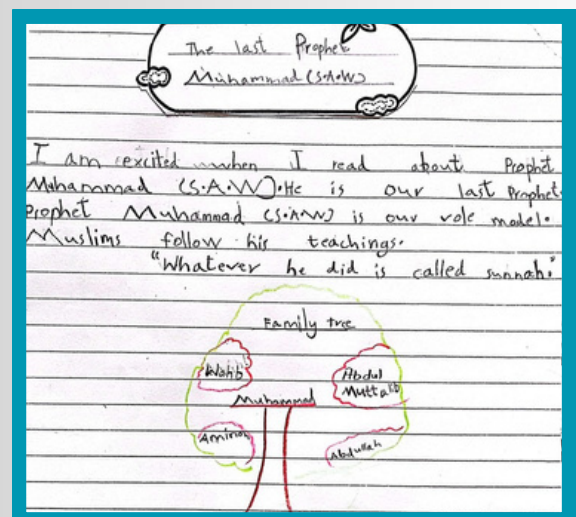 The last Prophet
Muhammad (S.A.W)
I am excited when I read about Prophet
Muhammad (S.A.W). He is our last Prophet.
Prophet Muhammad (S.A.W) is our role model.
Muslims follow his teachings.
"Whatever he did is called sunnah."
Family tree
Wahib
Abdul
Muttalib
Muhammad
Aminah
Abdullah